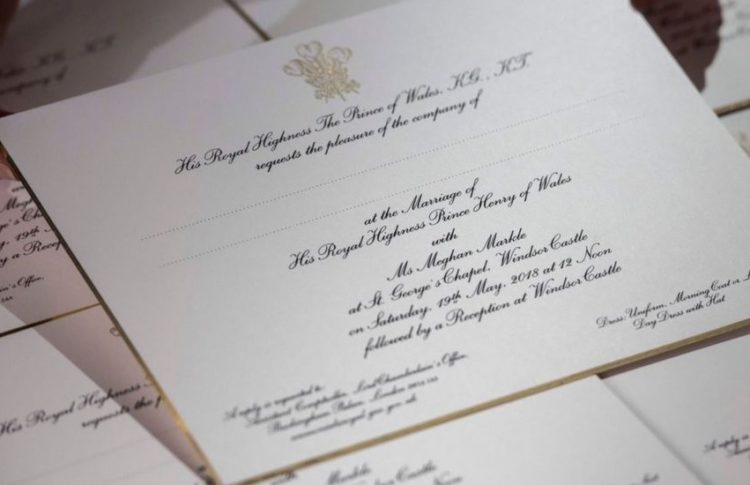 His Royal Highness The Prince of Wales, K.G., K.T.
requests the pleasure of the company of
at the Marriage of
His Royal Highness Prince Henry of Wales
with
Ms Meghan Markle
at St. George's Chapel, Windsor Castle
on Saturday, 19th May, 2018 at 12 Noon
followed by a Reception at Windsor Castle
Dress: Uniform, Morning Coat or
Day Dress with Hat
A reply is requested to:
Assistant Comptroller, Lord Chamberlain's Office,
Buckingham Palace, London
K.G., K.T.
company of
St. George's
19th
a Recept
His Royal Highness
requests the
Markle
Windsor Castle
A reply is